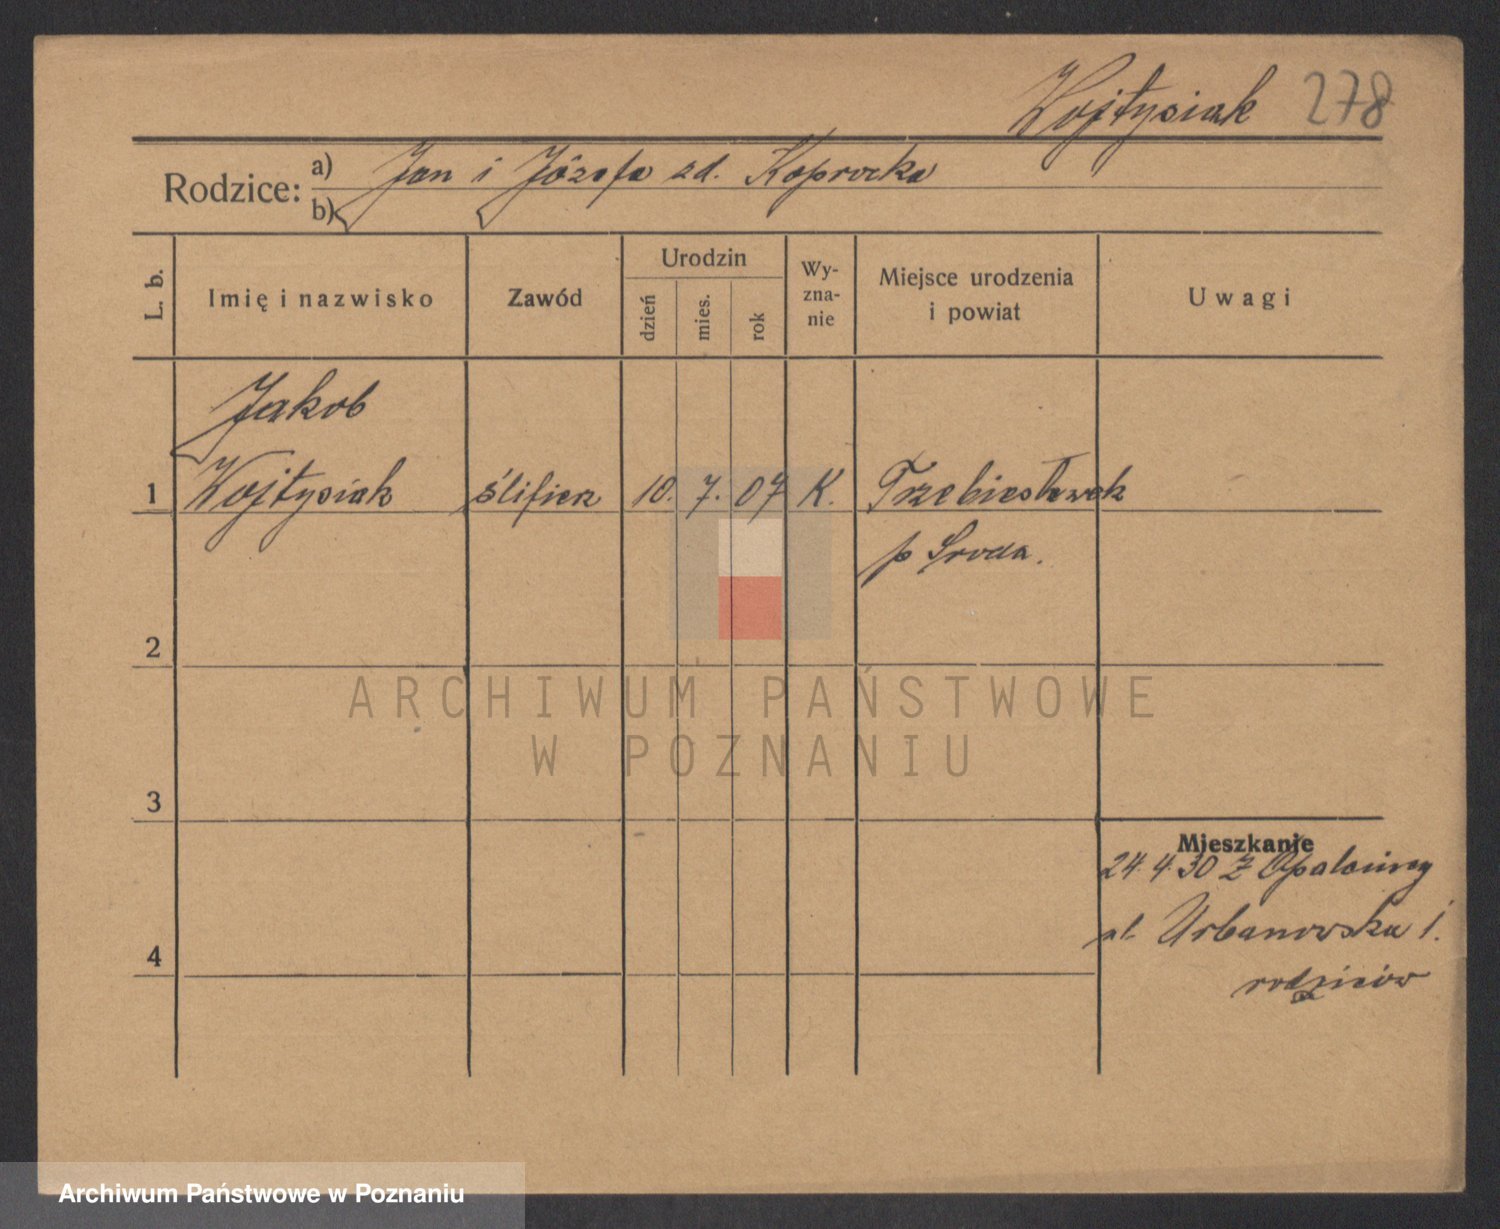 Wojtysiak 278
Rodzice: a) Jan i Józefa zd. Koprocka
b)
L. b. Imię i nazwisko Zawód Urodzin dzień mies. rok Wy-zna-nie Miejsce urodzenia i powiat Uwagi
Jakob
1 Wojtysiak ślifierz 10. 7. 07 K. Trzebiesławek
p Sroda.
2
ARCHIWUM PAŃSTWOWE
W POZNANIU
3
Mieszkanie
24.4.30 Z Opalenicy
ul. Urbanowska 1.
4
rodziców
Archiwum Państwowe w Poznaniu